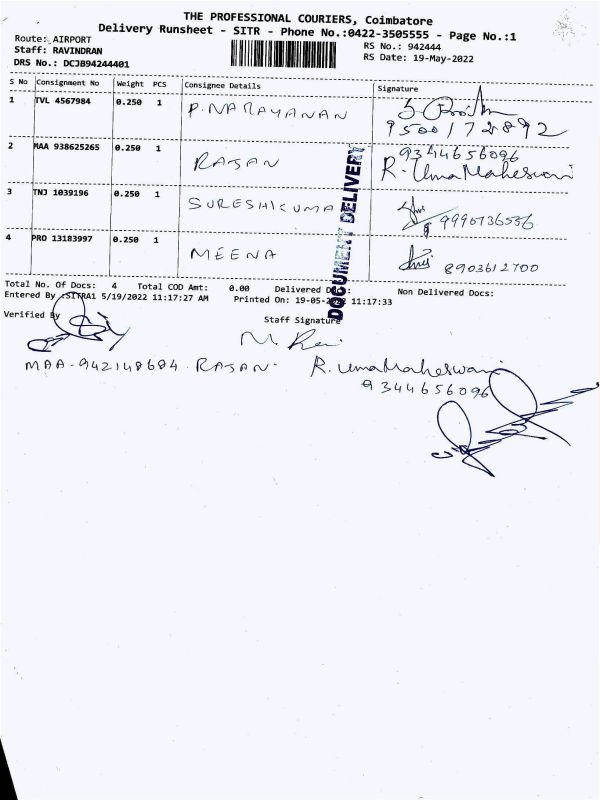 THE PROFESSIONAL COURIERS, Coimbatore
Delivery Runsheet - SITR - Phone No.:0422-3505555 - Page No.:1
Route: AIRPORT
Staff: RAVINDRAN
DRS No.: DCJB94244401
RS No.: 942444
RS Date: 19-May-2022
S No Consignment No Weight PCS Consignee Details Signature
1 TVL 4567984 0.250 1 P. NARAYANAN
9500172892
2 MAA 938625265 0.250 1 RAJAN 9344656096
R. UmaMaheswari
3 TNJ 1039196 0.250 1 SURESHKUMA 9990736536
4 PRO 13183997 0.250 1 MEENA 8903612700
DOCUMENT DELIVERY
Total No. Of Docs: 4 Total COD Amt: 0.00 Delivered Docs: Non Delivered Docs:
Entered By :SITRA1 5/19/2022 11:17:27 AM Printed On: 19-05-2022 11:17:33
Verified By Staff Signature
MAA-942148684 RAJAN. R. UmaMaheswari
9344656096